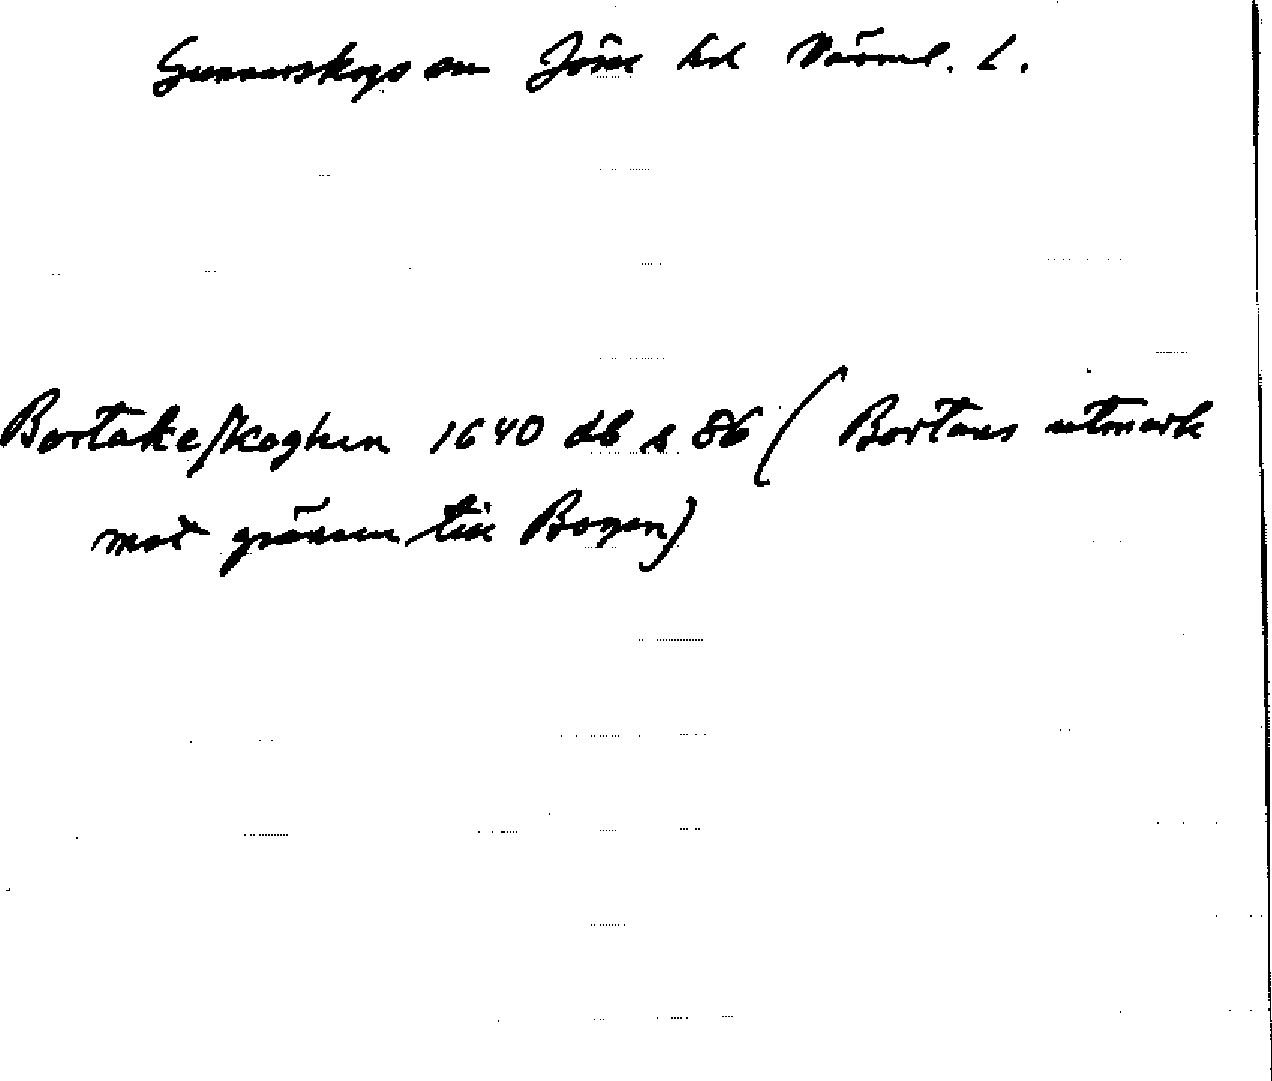 Gunnarskogs sn Jösse hd Värml. l.
Bortakeskoghen 1640 db s 86 (Bortans utmark
mot gränsen till Bogen)